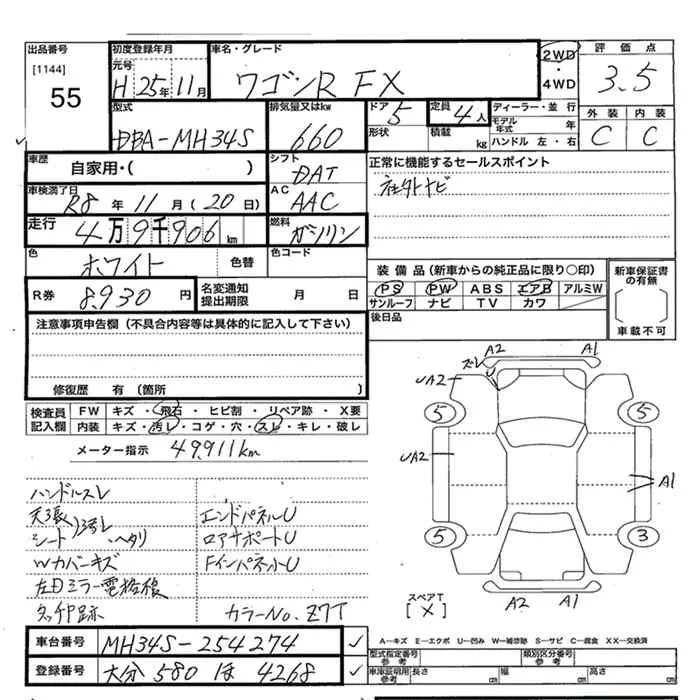 出品番号
[1144]
55
初度登録年月
元号
H 25年 11月
車名・グレード
ワゴンR FX
2WD
・
4WD
評価点
3.5
型式
DBA-MH34S
排気量又はkw
660
ドア 5
形状
定員 4人
積載 kg
ディーラー・並行
モデル年式 年
ハンドル 左・右
外装 内装
C C
車歴
自家用・( )
シフト
DAT
正常に機能するセールスポイント
社外ナビ
車検満了日
R8年 11月 (20日)
AC
AAC
走行
4万9千906km
燃料
ガソリン
色
ホワイト
色替
色コード
R券
8,930円
名変通知
提出期限 月 日
装備品(新車からの純正品に限り○印)
PS PW ABS エアB アルミW
サンルーフ ナビ TV カワ
後日品
新車保証書
の有無
[ ]
車載不可
注意事項申告欄(不具合内容等は具体的に記入して下さい)
修復歴 有(箇所 )
検査員
記入欄
FW キズ・飛石・ヒビ割・リペア跡・X要
内装 キズ・汚レ・コゲ・穴・スレ・キレ・破レ
メーター指示 49,911km
ハンドルスレ
天張
シート ヘタリ
エンドパネルU
ロアサポートU
Wカバーキズ
FインパネルU
左Dミラー電格様
タッチP跡
カラーNo. Z7T
ズレ
A2
A1
U
UA2
5
5
UA2
A1
5
3
A2
A1
スペアT
[X]
A―キズ E―エクボ U―凹み W―補修跡 S―サビ C―腐食 XX―交換済
車台番号 MH34S-254274
登録番号 大分 580 ほ 4268
型式指定番号
参考
類別区分番号
参考
車庫証明用
参考
長さ cm 幅 cm 高さ cm